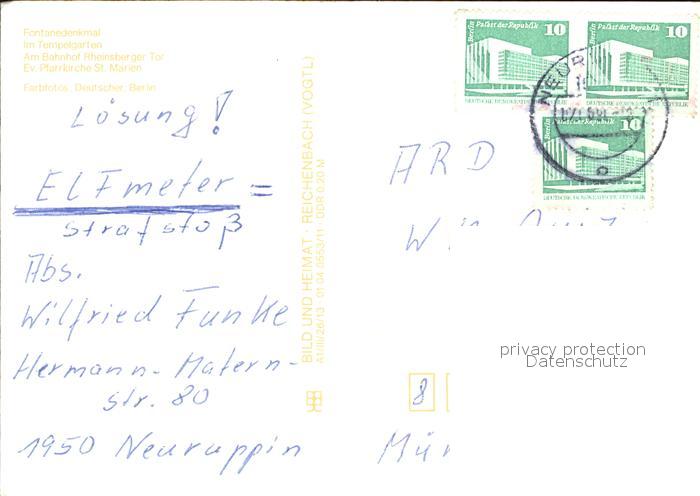 Fontanedenkmal
Im Tempelgarten
Am Bahnhof Rheinsberger Tor
Ev. Pfarrkirche St. Marien
Farbfotos, Deutscher, Berlin
Lösung!
ELFmeter =
strafstoß
Abs.
Wilfried Funke
Hermann-Matern-
str. 80
1950 Neuruppin
BILD UND HEIMAT · REICHENBACH (VOGTL)
A1/III/26/13 · 01 04 0553/11 · DDR 0,20 M
Berlin Palast der Republik 10
DEUTSCHE DEMOKRATISCHE REPUBLIK
Berlin Palast der Republik 10
DEUTSCHE DEMOKRATISCHE REPUBLIK
Palast der Republik 10
DEUTSCHE DEMOKRATISCHE REPUBLIK
NEUR
ARD
8
Mün
privacy protection
Datenschutz